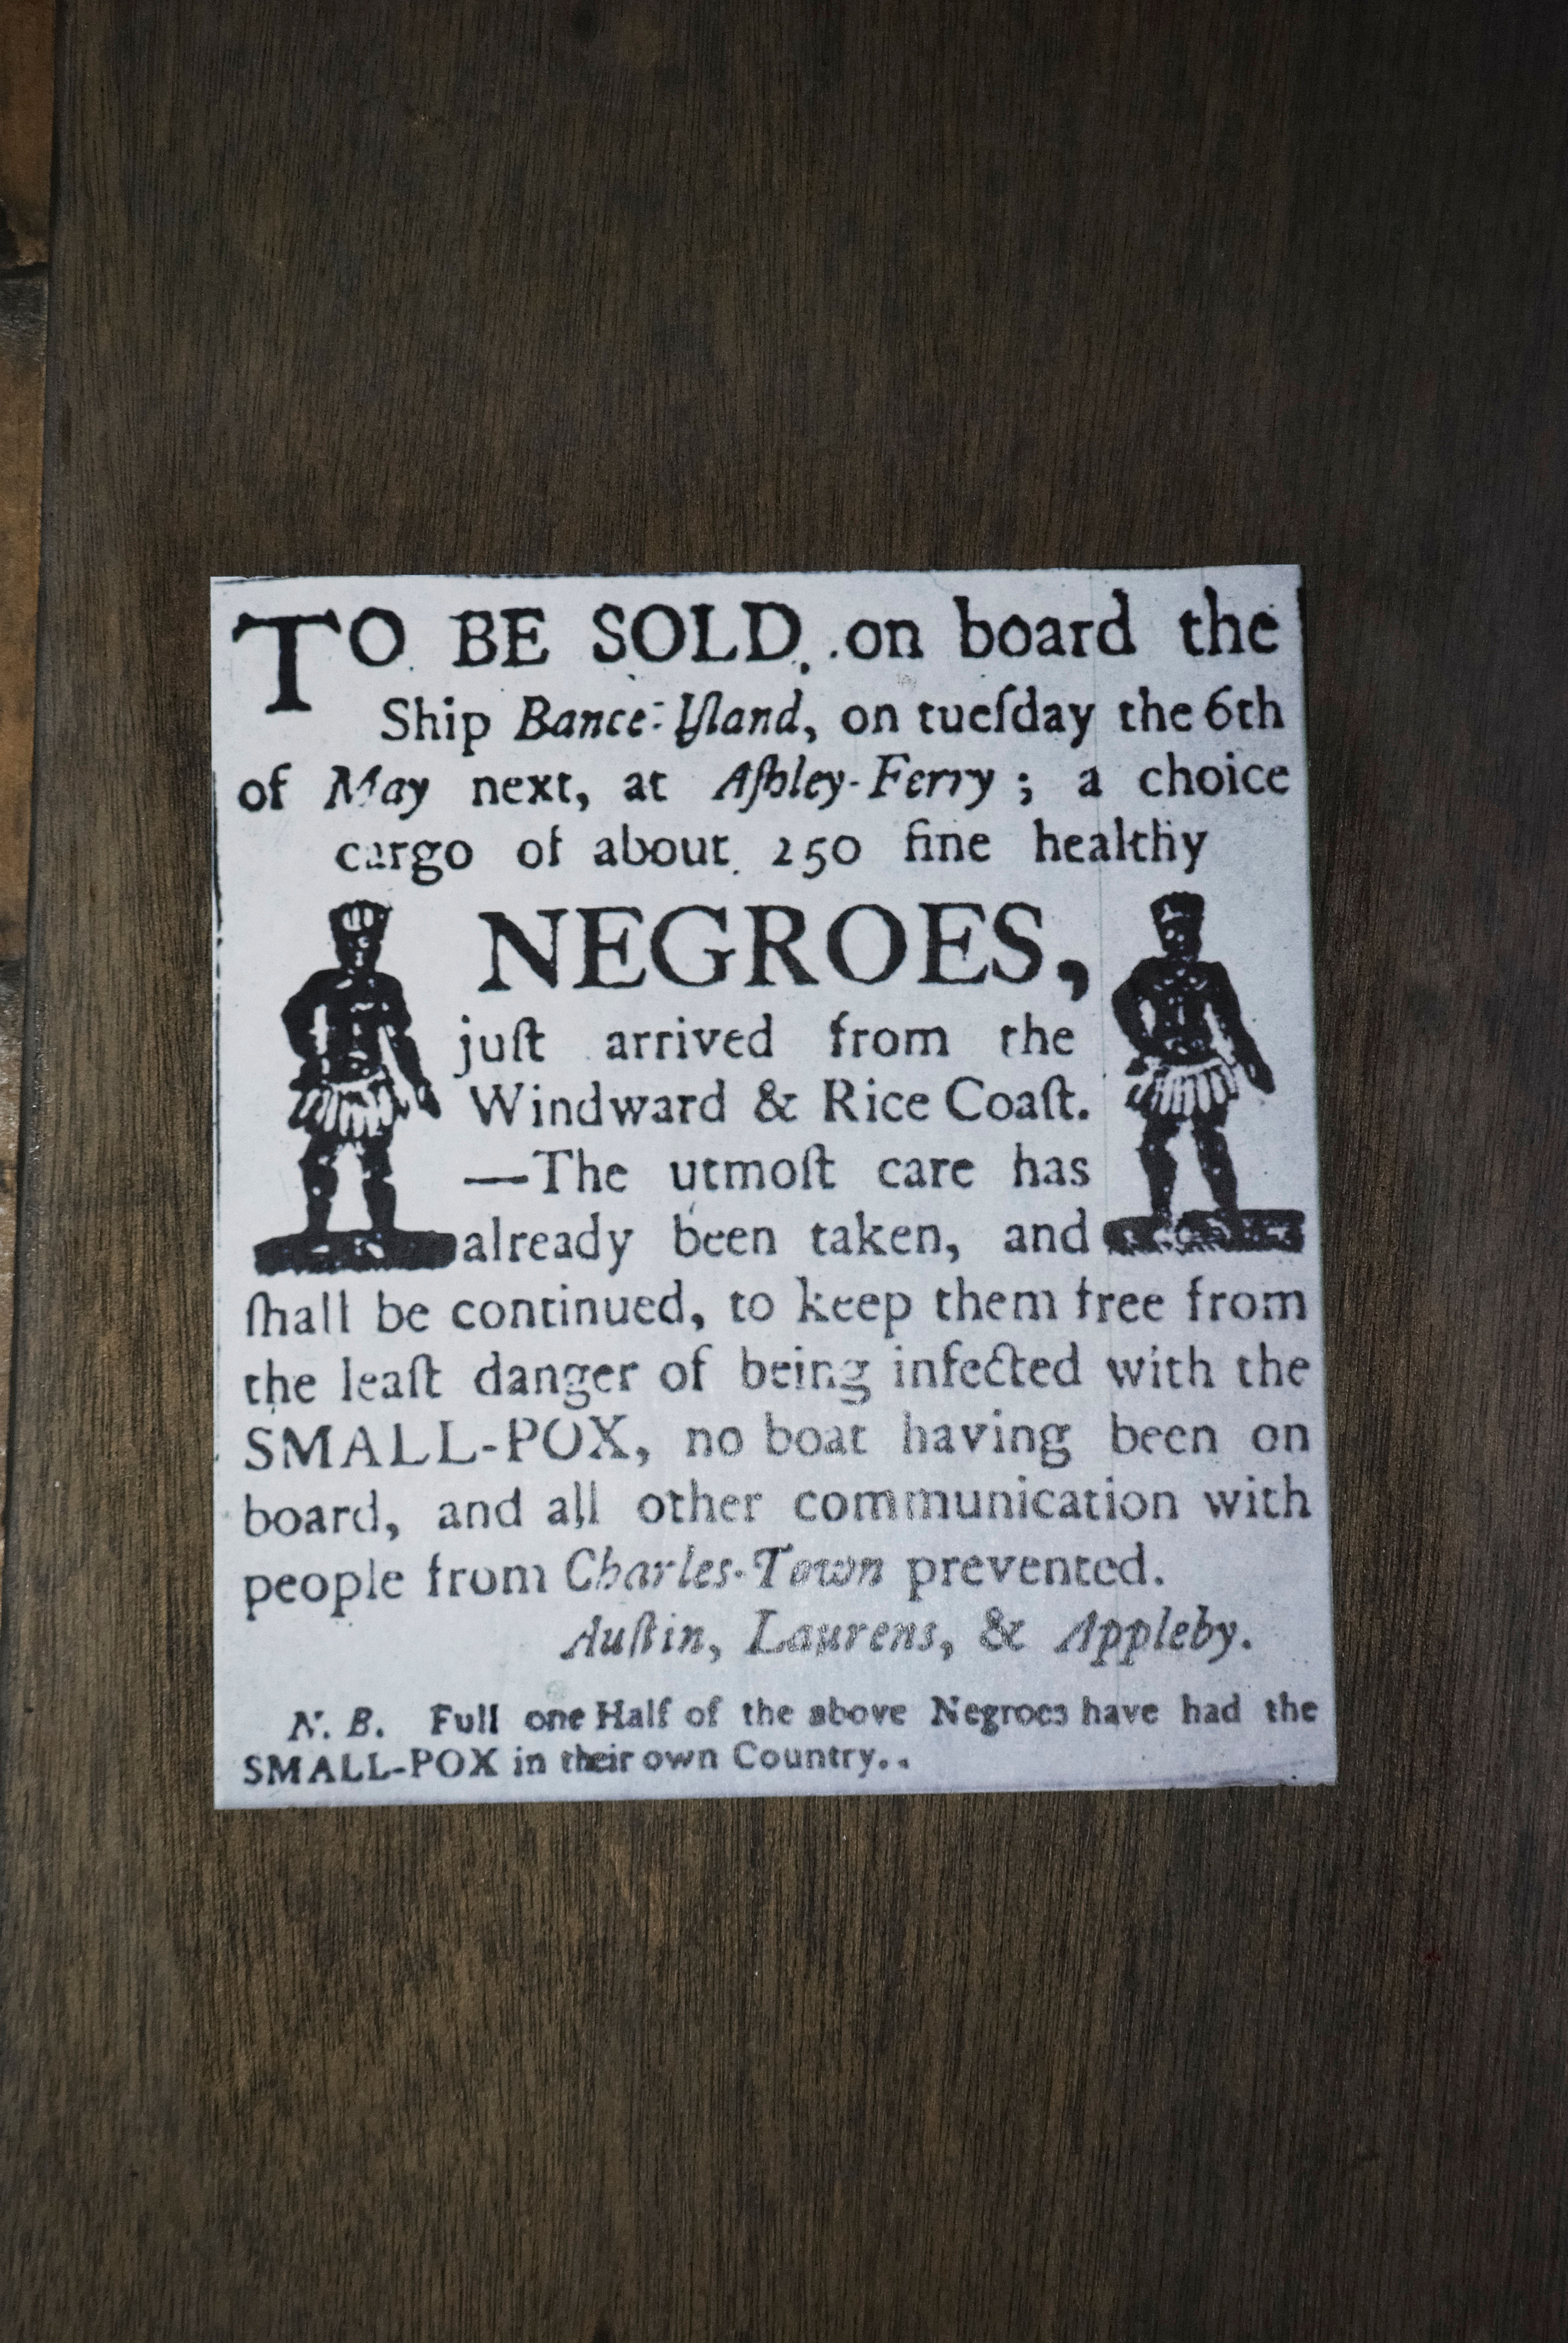 TO BE SOLD, on board the
Ship Bance-Iſland, on tueſday the 6th
of May next, at Aſhley-Ferry ; a choice
cargo of about 250 fine healthy
NEGROES,
juſt arrived from the
Windward & Rice Coaſt.
—The utmoſt care has
already been taken, and
ſhall be continued, to keep them free from
the leaſt danger of being infected with the
SMALL-POX, no boat having been on
board, and all other communication with
people from Charles-Town prevented.
Auſtin, Laurens, & Appleby.
N. B. Full one Half of the above Negroes have had the
SMALL-POX in their own Country.